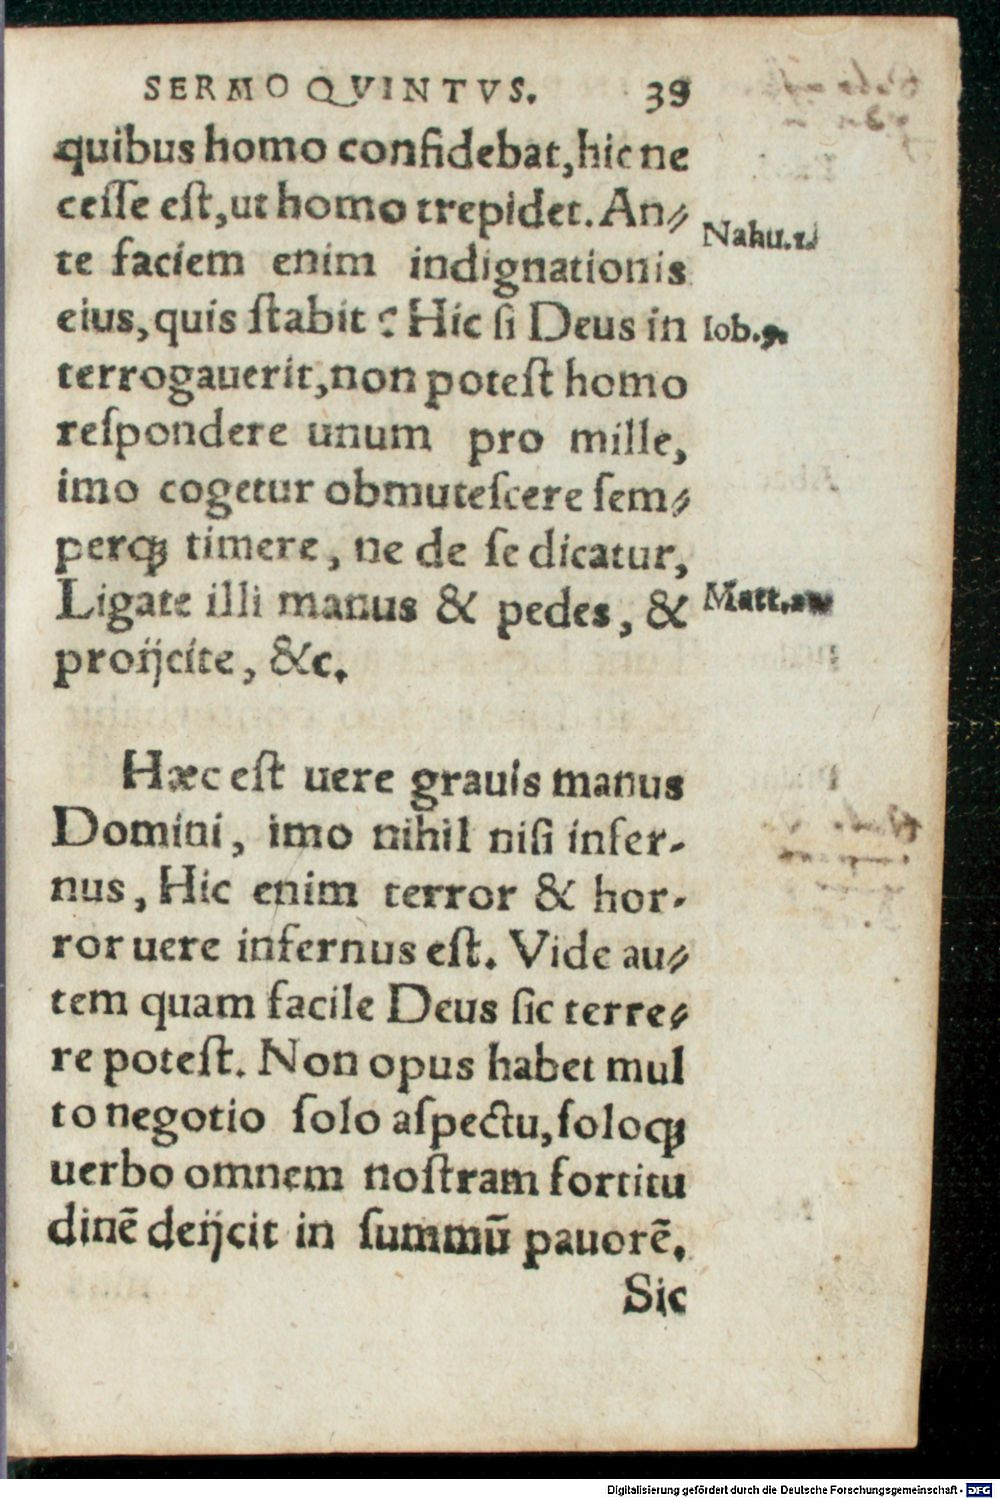 SERMO QVINTVS. 39
quibus homo confidebat, hic ne
cesſe eſt, ut homo trepidet. An⸗
te faciem enim indignationis
eius, quis ſtabit? Hic ſi Deus in
terrogauerit, non poteſt homo
reſpondere unum pro mille,
imo cogetur obmuteſcere ſem⸗
perqꝫ timere, ne de ſe dicatur,
Ligate illi manus & pedes, &
proijcite, &c.
Nahu.1.
Iob.9.
Matt.
Hæc eſt uere grauis manus
Domini, imo nihil niſi infer-
nus, Hic enim terror & hor-
ror uere infernus eſt. Vide au⸗
tem quam facile Deus ſic terre⸗
re poteſt. Non opus habet mul
to negotio ſolo aſpectu, ſoloqꝫ
uerbo omnem noſtram fortitu
dinẽ deijcit in ſummũ pauorẽ.
Sic
Digitalisierung gefördert durch die Deutsche Forschungsgemeinschaft - DFG